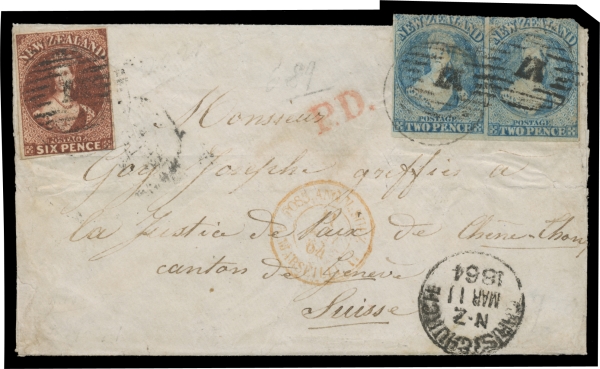 NEW ZEALAND
POSTAGE
SIX PENCE
NEW ZEALAND
POSTAGE
TWO PENCE
NEW ZEALAND
POSTAGE
TWO PENCE
P.D.
Monsieur
Joseph greffier à
la Justice de Paix de Chêne-Thon
canton de Genève
Suisse
CHRISTCHURCH
N-Z
MAR 11
1864